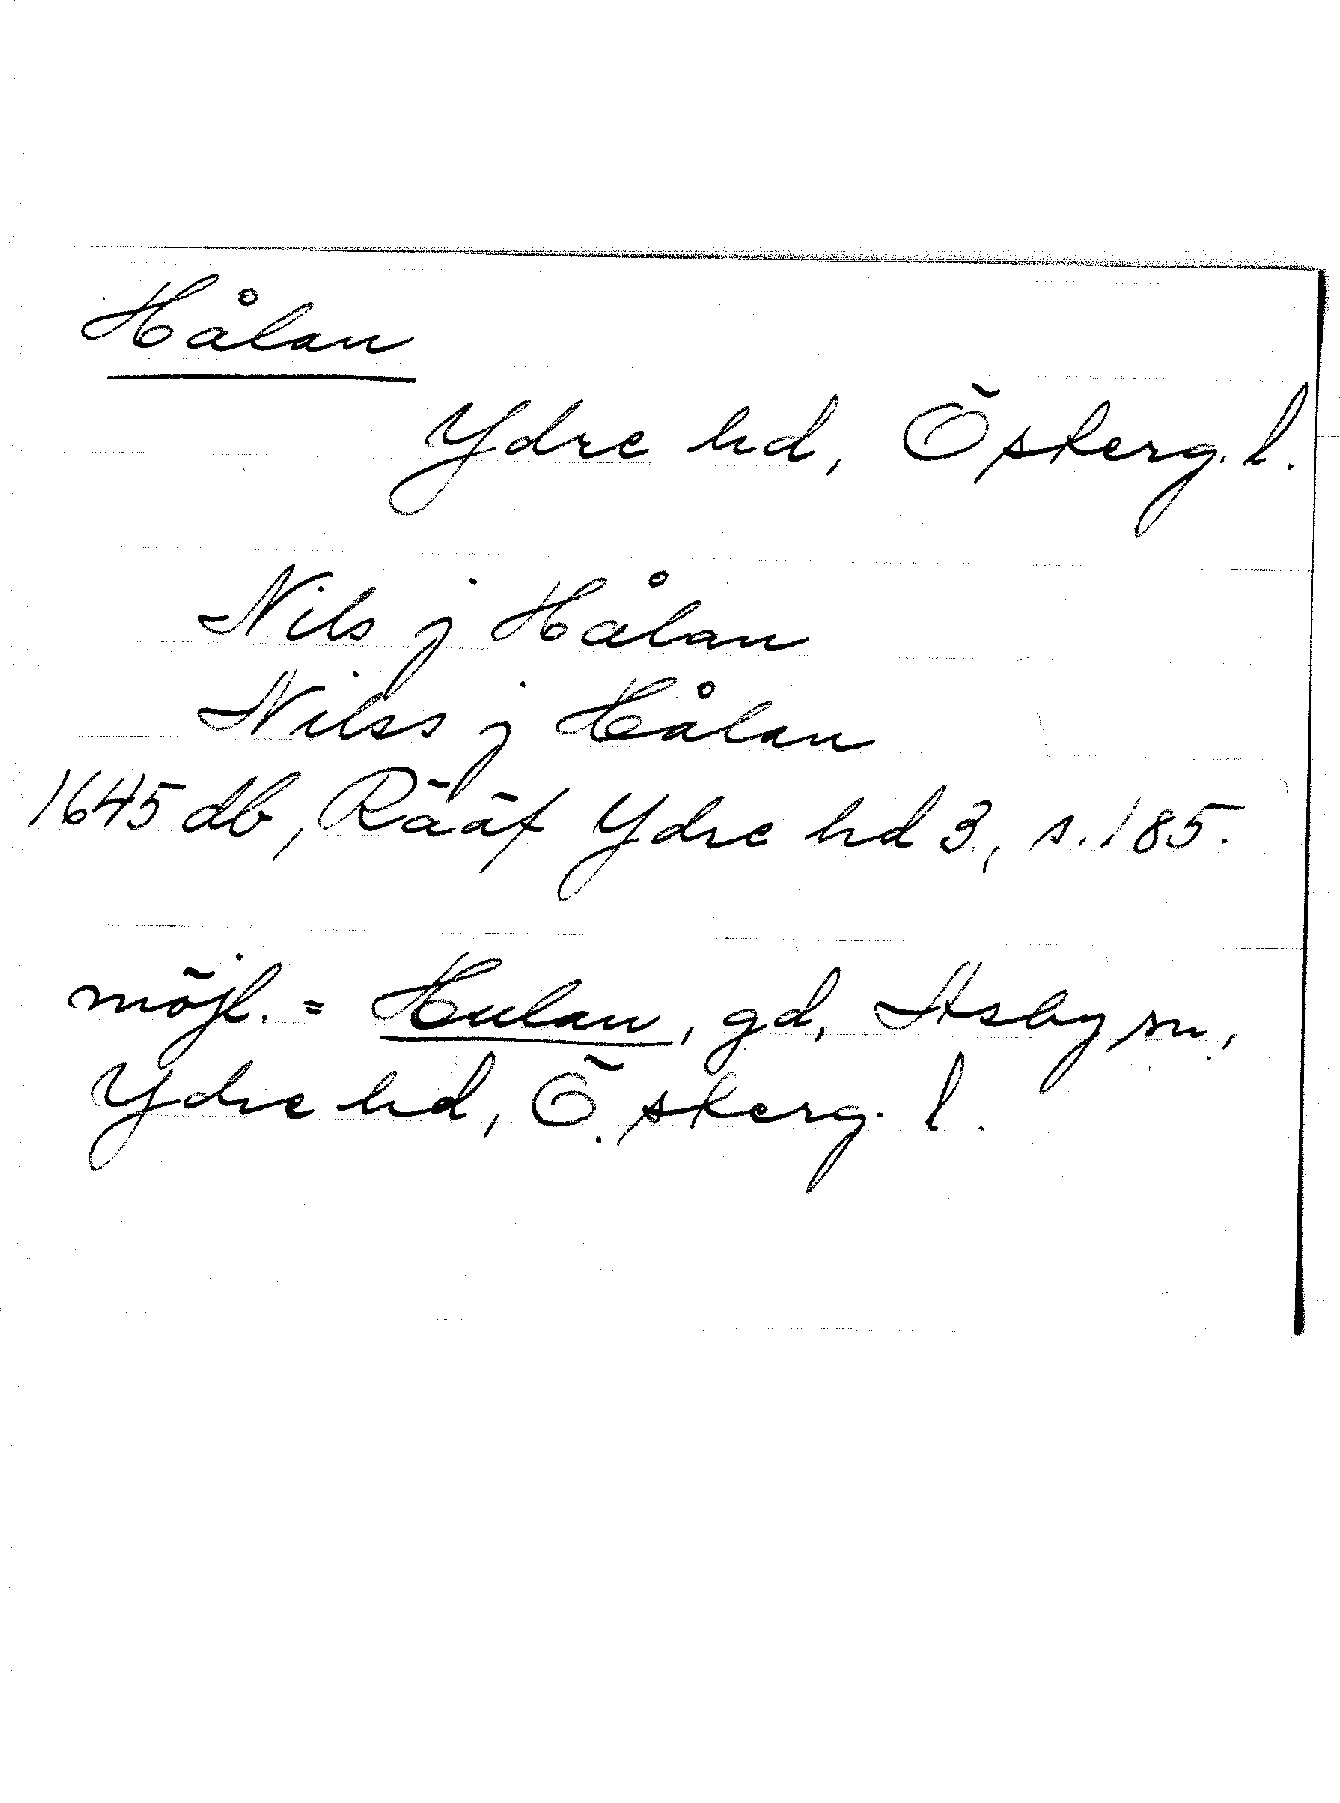 Hålan
Ydre hd, Österg. l.
Nils j Hålan
Nilss j Hålan
1645 db, Rääf Ydre hd 3, s. 185.
möjl. = Hulan, gd, Asby sn,
Ydre hd, Ö.sterg. l.